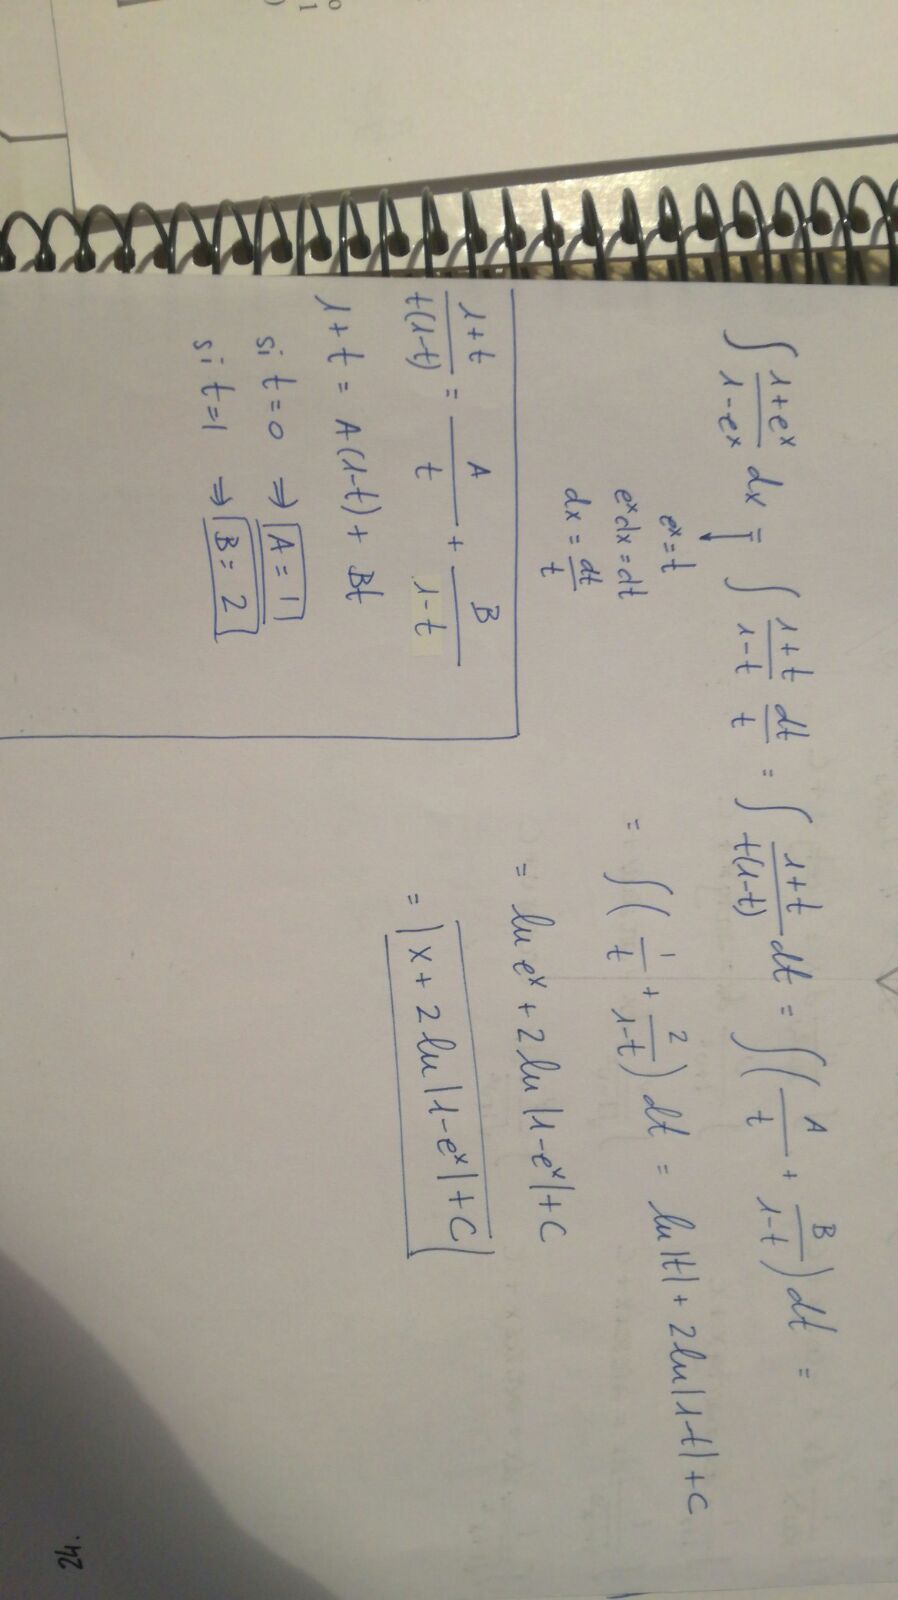 ∫ (1+eˣ)/(1-eˣ) dx = ∫ (1+t)/(1-t) dt/t = ∫ (1+t)/(t(1-t)) dt = ∫ (A/t + B/(1-t)) dt =
eˣ=t
eˣdx=dt
dx=dt/t
= ∫ (1/t + 2/(1-t)) dt = ln|t| + 2ln|1-t| + C
= ln eˣ + 2ln|1-eˣ| + C
= x + 2ln|1-eˣ| + C
(1+t)/(t(1-t)) = A/t + B/(1-t)
1+t = A(1-t) + Bt
si t=0 ⇒ A=1
si t=1 ⇒ B=2
24.